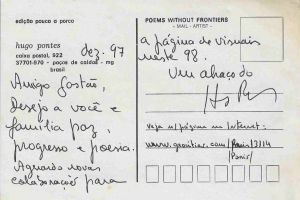 edição pouco o porco
hugo pontes
caixa postal, 922
37701-970 - poços de caldas - mg
brasil
dez. 97
Amigo Gastão,
desejo a você e
família paz,
progresso e poesia.
Aguardo novas
colaborações para
POEMS WITHOUT FRONTIERS
- MAIL - ARTIST -
a página de visuais
neste 98.
Um abraço do
veja n/ página na Internet:
/Paris/3114